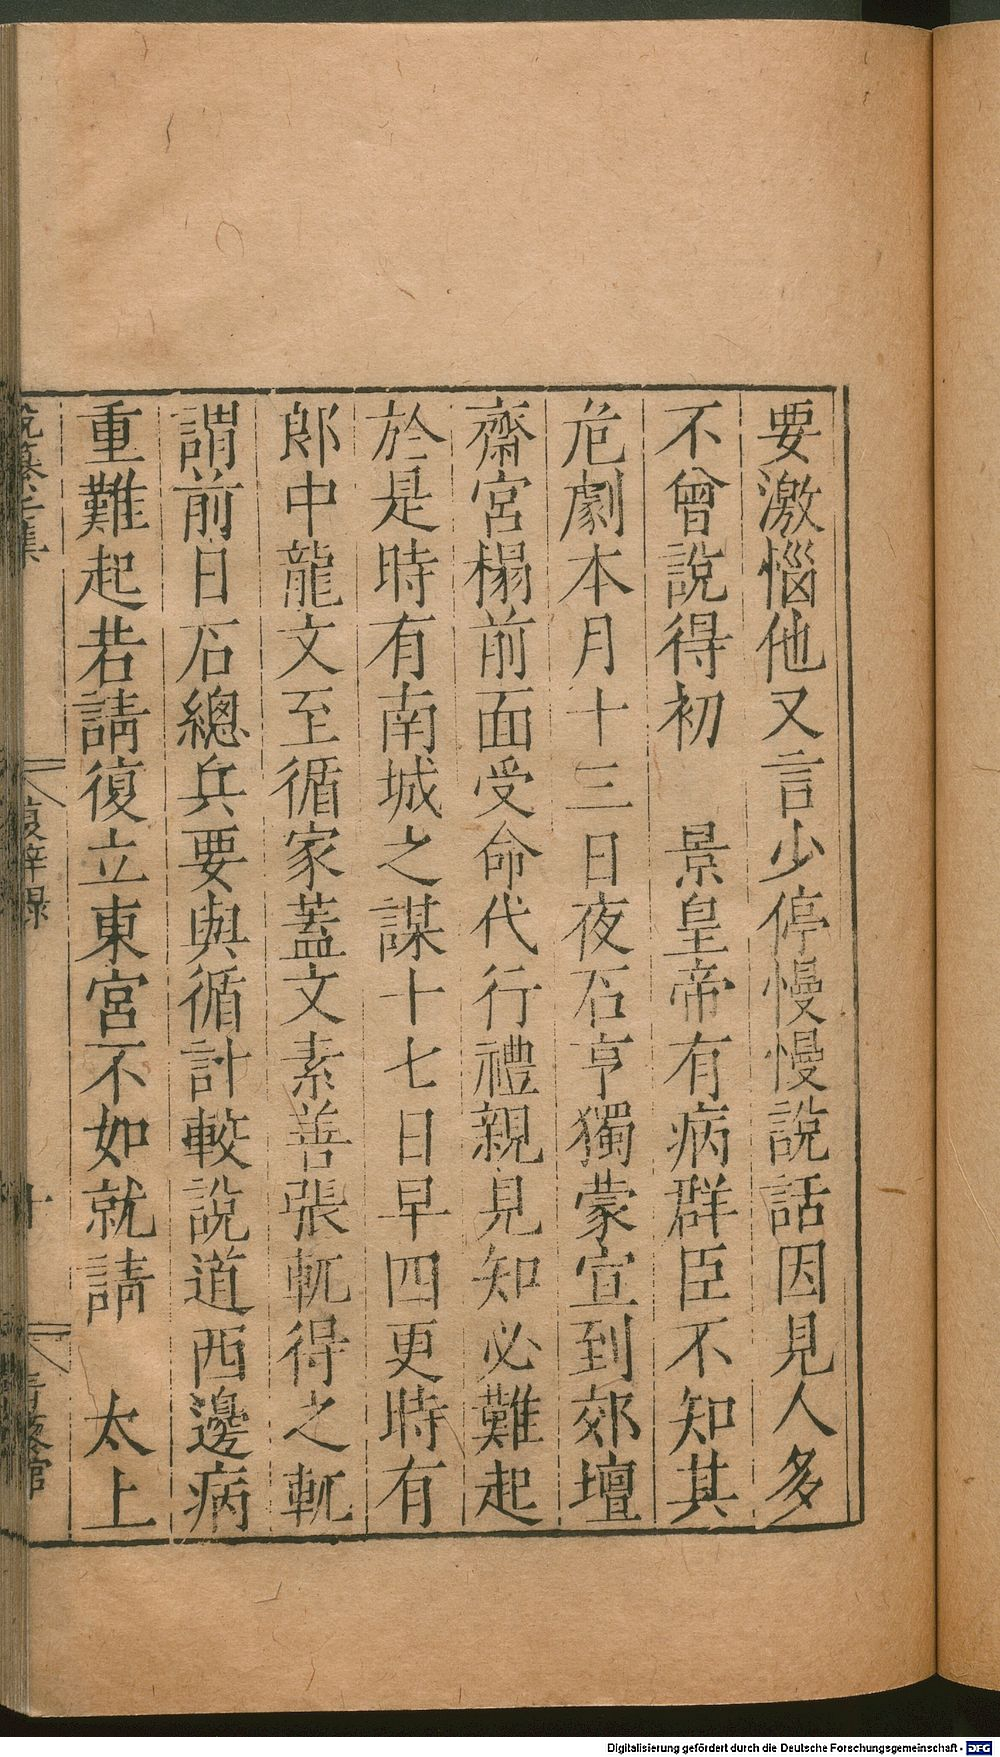 要激惱他又言少停慢慢說話因見人多
不曾說得初　景皇帝有病群臣不知其
危劇本月十三日夜石亨獨蒙宣到郊壇
齋宮榻前面受命代行禮親見知必難起
於是時有南城之謀十七日早四更時有
郎中龍文至循家蓋文素善張軏得之軏
謂前日石總兵要與循計較說道西邊病
重難起若請復立東宮不如就請　太上
復辟錄
十
Digitalisierung gefördert durch die Deutsche Forschungsgemeinschaft - DFG